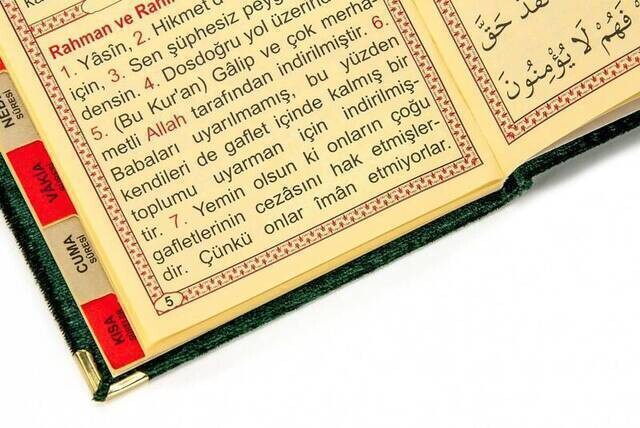 Rahman ve Rahîm
1. Yâsîn, 2. Hikmet d
için, 3. Sen şüphesiz peyg
densin. 4. Dosdoğru yol üzerin
5. (Bu Kur'an) Gâlip ve çok merha-
metli Allah tarafından indirilmiştir. 6.
Babaları uyarılmamış, bu yüzden
kendileri de gaflet içinde kalmış bir
toplumu uyarman için indirilmiş-
tir. 7. Yemin olsun ki onların çoğu
gafletlerinin cezâsını hak etmişler-
dir. Çünkü onlar îmân etmiyorlar.
5
حَقَّ
فَهُمْ لَا يُؤْمِنُونَ
NEBE
SURESİ
VAKIA
CUMA
SURESİ
KISA